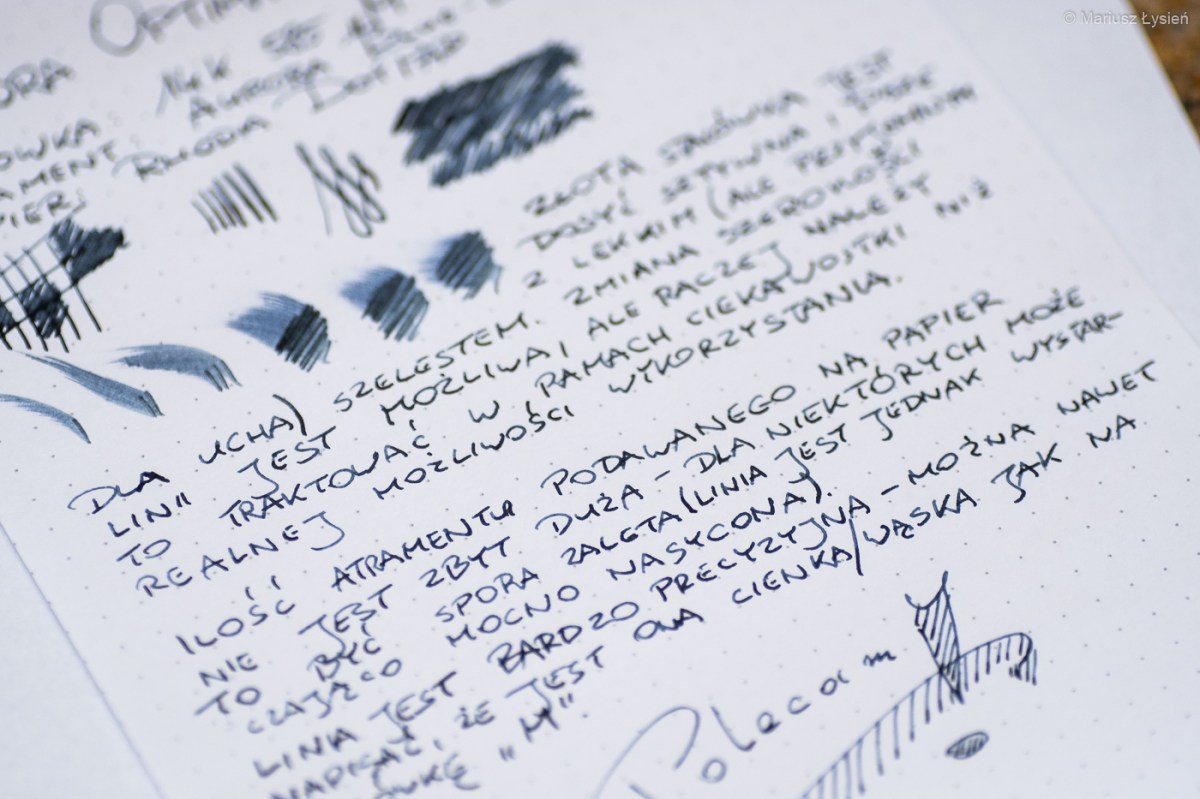 © Mariusz Łysień
OPTIMA
ORA 14K
ÓWKA: AURORA
AMENT: RHODIA
PIER:
ZŁOTA STALÓWKA JEST
DOSYĆ SZTYWNA I PISZE
Z LEKKIM (ALE PRZYJEMNYM
DLA UCHA) SZELESTEM. ZMIANA SZEROKOŚCI
LINII JEST MOŻLIWA, ALE RACZEJ NALEŻY
TO TRAKTOWAĆ W RAMACH CIEKAWOSTKI NIŻ
REALNEJ MOŻLIWOŚCI WYKORZYSTANIA.
ILOŚĆ ATRAMENTU PODAWANEGO NA PAPIER
NIE JEST ZBYT DUŻA – DLA NIEKTÓRYCH MOŻE
TO BYĆ SPORA ZALETA (LINIA JEST JEDNAK WYSTAR-
CZAJĄCO MOCNO NASYCONA).
LINIA JEST BARDZO PRECYZYJNA – MOŻNA NAWET
NAPISAĆ, ŻE JEST ONA CIENKA/WĄSKA JAK NA
ÓWKĘ „M”.
Polecam